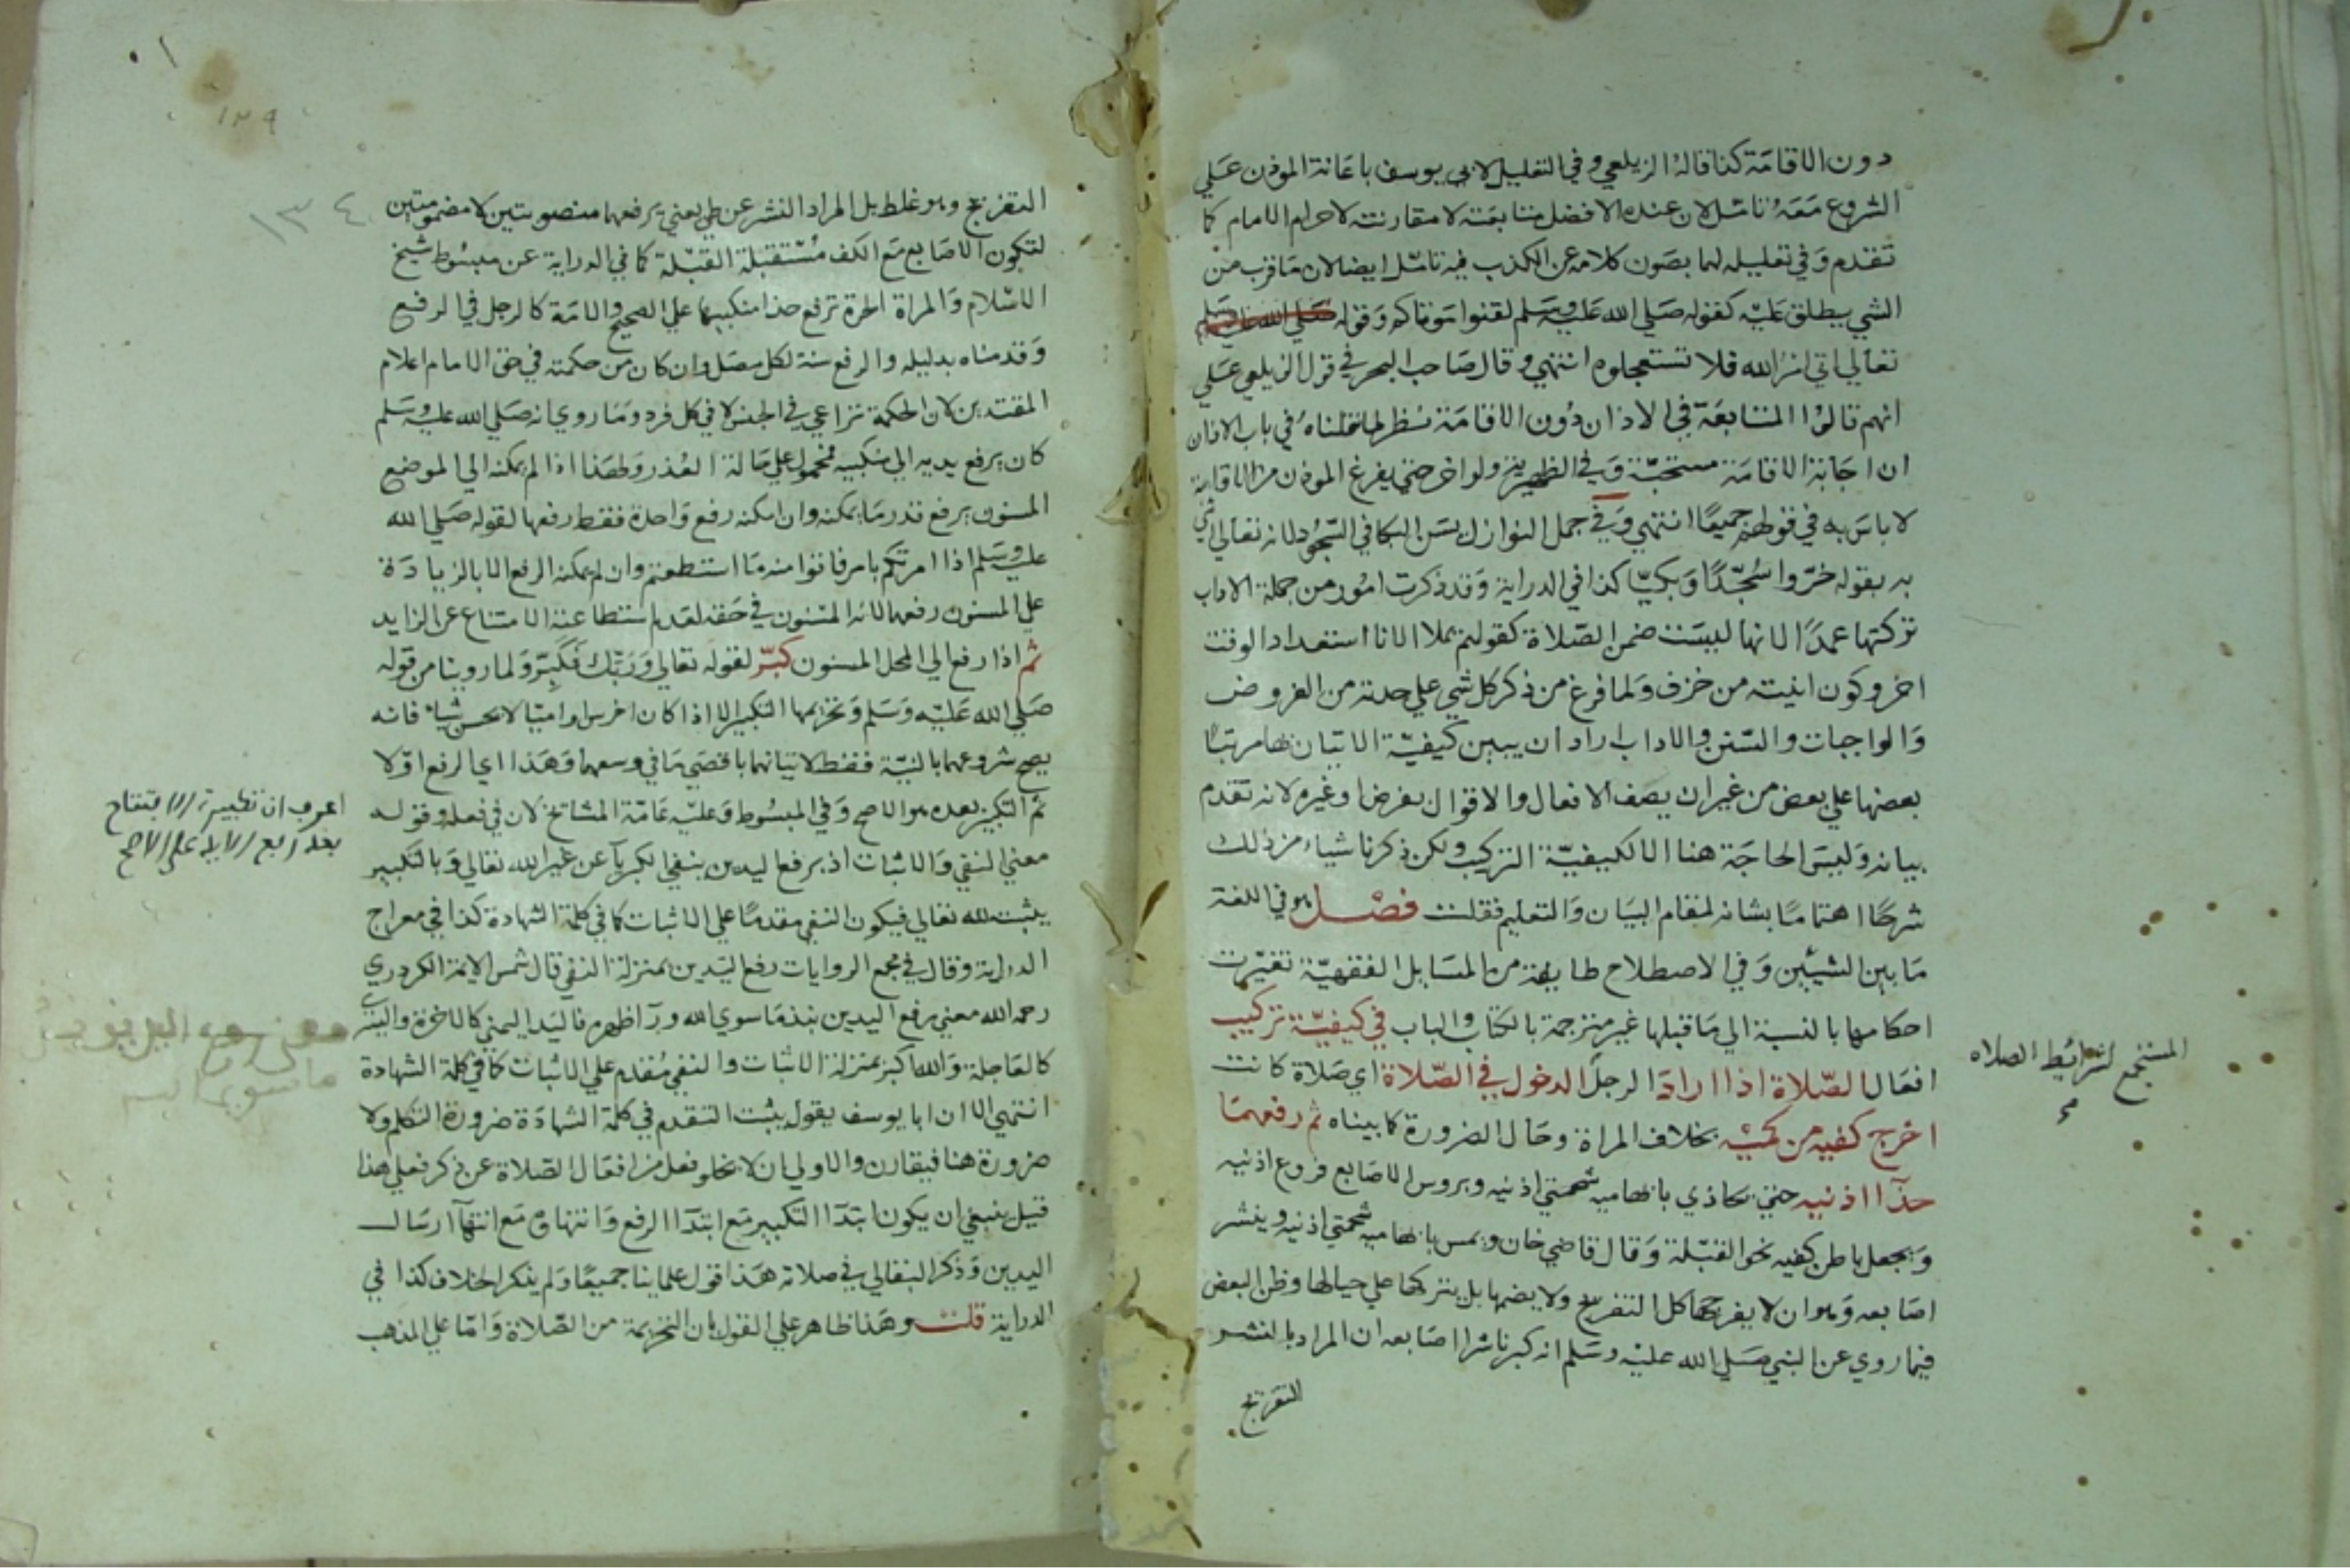 دون الاقامة كذا قاله الزيلعي وفي التعليل لابي يوسف باعانة الموذن علي
الشروع معه تامل لان عنده الافضل متابعته لا مقارنته لاحرام الامام كما
تقدم وفي تعليله لهما بصون كلامه عن الكذب فيه تامل ايضا لان ما قرب من
الشي يطلق عليه كقوله صلي الله عليه وسلم لقنوا موتاكم وقوله صلي الله عليه وسلم
تعالي اتي امر الله فلا تستعجلوه انتهي وقال صاحب البحر في قول الزيلعي علي
انهم قالوا المتابعة في الاذان دون الاقامة نظر لما نقلناه في باب الاذان
ان اجابة الاقامة مستحبة وفي الظهيرية ولو اخر حتي يفرغ الموذن من الاقامة
لا باس به في قولهم جميعا انتهي وفي جمل النوازل يسن البكا في السجود لانه تعالي اثني
به بقوله خروا سجدا وبكيا كذا في الدراية وقد ذكرت امور من جملة الاداب
تركتها عمدا لانها ليست ضمن الصلاة كقولهم بملا الانا استعداد الوقت
اخر وكون انيته من خزف ولما فرغ من ذكر كل شي علي حدته من الفروض
والواجبات والسنن والاداب اراد ان يبين كيفية الاتيان بها مرتبا
بعضها علي بعض من غير ان يصف الافعال والاقوال بفرض او غيره لانه تقدم
بيانه وليس الحاجة هنا الا لكيفية التركيب ولكن ذكرنا شياء من ذلك
شرحا اهتماما بشانه لمقام البيان والتعليم فقلت فصل هو في اللغة
ما بين الشيئين وفي الاصطلاح طايفة من المسايل الفقهية تغيرت
احكامها بالنسبة الي ما قبلها غير مترجمة بالكتاب والباب في كيفية تركيب
افعال الصلاة اذا اراد الرجل الدخول في الصلاة اي صلاة كانت
اخرج كفيه من كميه بخلاف المراة وحال الضرورة كما بيناه ثم رفعهما
حذا اذنيه حتي يحاذي بابهاميه شحمتي اذنيه وبروس الاصابع فروع اذنيه
ويجعل باطن كفيه نحو القبلة وقال قاضي خان ويمس بابهاميه شحمتي اذنيه وينشر
اصابعه وهو ان لا يفرجها كل التفريج ولا يضمها بل يتركها علي حيالها وظن البعض
فيما روي عن النبي صلي الله عليه وسلم انه كبر ناشرا اصابعه ان المراد بالنشر
التفريج
المستجمع لشرائط الصلاه
١٢٩
١٣٤
التفريج وهو غلط بل المراد النشر عن طي يعني يرفعهما منصوبتين لا مضمومتين
لتكون الاصابع مع الكف مستقبلة القبلة كما في الدراية عن مبسوط شيخ
الاسلام والمراة الحرة ترفع حذا منكبيها علي الصحيح والامة كالرجل في الرفع
وقدمناه بدليله والرفع سنة لكل مصل وان كان من حكمته في حق الامام اعلام
المقتدين لان الحكمة تراعي في الجنس لا في كل فرد وما روي انه صلي الله عليه وسلم
كان يرفع يديه الي منكبيه محمول علي حالة العذر ولهذا اذا لم يمكنه الي الموضع
المسنون يرفع قدر ما يمكنه وان امكنه رفع واحدة فقط رفعها لقوله صلي الله
عليه وسلم اذا امرتكم بامر فاتوا منه ما استطعتم وان لم يمكنه الرفع الا بالزيادة
علي المسنون رفعهما لانه المسنون في حقه لعدم استطاعته الامتناع عن الزايد
ثم اذا رفع الي المحل المسنون كبر لقوله تعالي وربك فكبر ولما روينا من قوله
صلي الله عليه وسلم وتحريمها التكبير الا اذا كان اخرس او اميا لا يحسن شياء فانه
يصح شروعهما بالنية فقط لاتيانهما باقصي ما في وسعهما وهذا اي الرفع اولا
ثم التكبير بعده هو الاصح وفي المبسوط وعليه عامة المشائخ لان في فعله وقوله
معني النفي والاثبات اذ برفع اليدين ينفي الكبرياء عن غير الله تعالي وبالتكبير
يثبت لله تعالي فيكون النفي مقدما علي الاثبات كما في كلمة الشهادة كذا في معراج
الدراية وقال في مجمع الروايات رفع اليدين بمنزلة النفي قال شمس الايمة الكردري
رحمه الله معني رفع اليدين نبذ ما سوي الله ورآ ظهره فاليد اليمني كالاخرة واليسري
كالعاجلة والله اكبر بمنزلة الاثبات والنفي مقدم علي الاثبات كما في كلمة الشهادة
انتهي الا ان ابا يوسف يقول يثبت التقدم في كلمة الشهادة ضرورة التكلم ولا
ضرورة هنا فيقارن والاولي ان لا يخلو فعل من افعال الصلاة عن ذكر فعلي هذا
قيل ينبغي ان يكون ابتدآ التكبير مع ابتدآ الرفع وانتهاوه مع انتهآ ارسال
اليدين وذكر البقالي في صلاته هذا قول علمائنا جميعا ولم يذكر الخلاف كذا في
الدراية قلت وهذا ظاهر علي القول بان التحريمة من الصلاة واما علي المذهب
اعرف ان تكبيرة الافتتاح
بعد رفع الايد علي الاصح
معني رفع اليدين نبذ
ما سوي الله